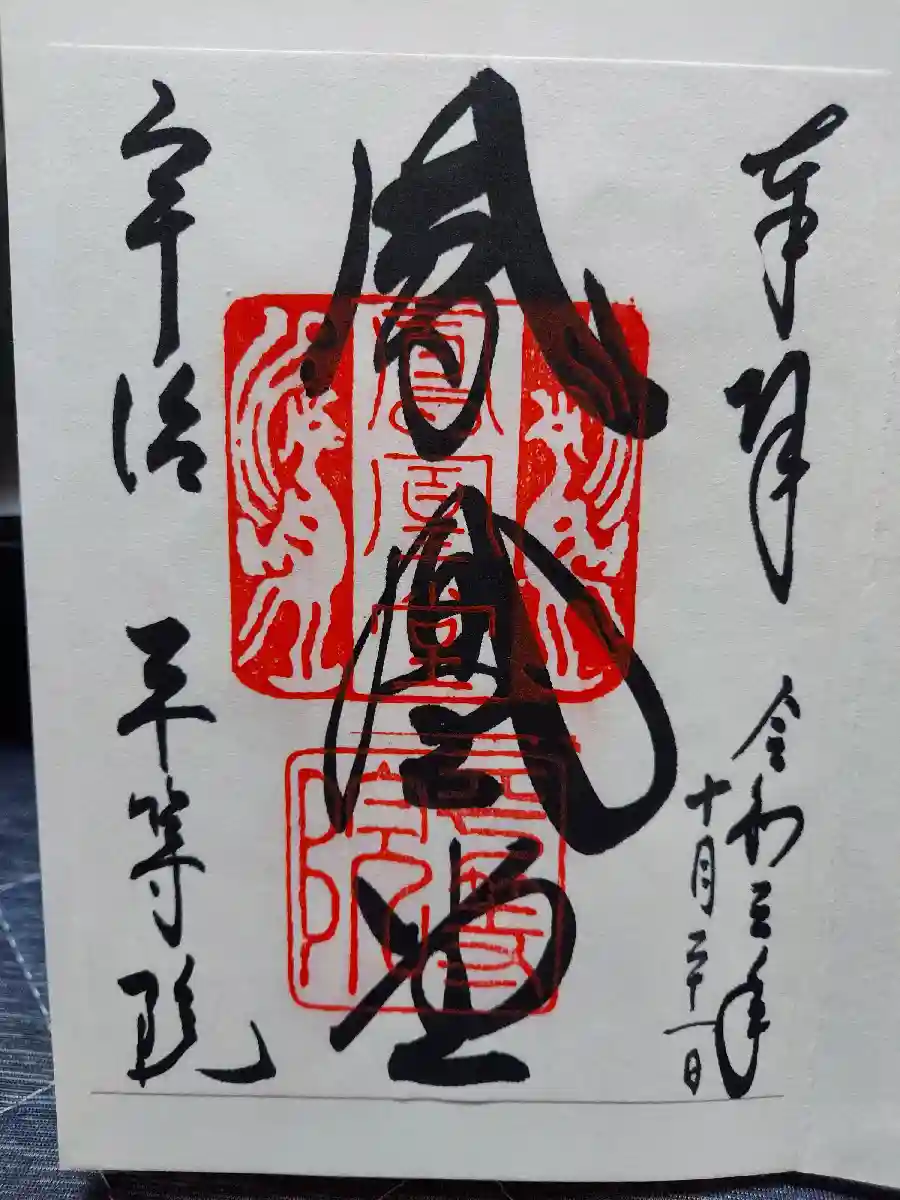 奉拝
令和三年
十月二十一日
鳳凰堂
宇治 平等院
鳳凰堂
平等院